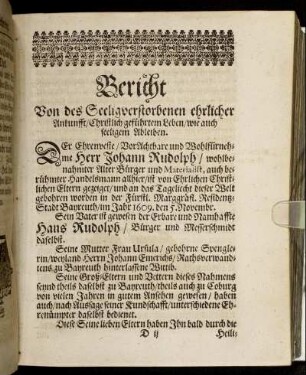 Bericht
Von des Seeligverstorbenen ehrlicher
Ankunfft/ Christlich geführtem Leben/ wie auch
seeligem Ableiben.
DEr Ehrenveste/ VorAchtbare und Wohlfürneh-
me Herr Johann Rudolph/ wohlbe-
nahmter Alter Bürger und Materialist, auch be-
rühmter Handelsmann alhier/ ist von Ehrlichen Christ-
lichen Eltern gezeuget/ und an das Tagelicht dieser Welt
gebohren worden in der Fürstl. Marggräfl. Residentz-
Stadt Bayreuth/ im Jahr 1609. den 5. Novemb.
Sein Vater ist gewesen der Erbare und Namhaffte
Hans Rudolph/ Bürger und Messerschmidt
daselbst.
Seine Mutter Frau Ursula/ gebohrne Spengle-
rin/ weyland Herrn Johann Emerichs/ Rathsverwand-
tens zu Bayreuth hinterlassene Wittib.
Seine GroßEltern und Vettern dieses Nahmens
seynd theils daselbst zu Bayreuth/ theils auch zu Coburg
von vielen Jahren in gutem Ansehen gewesen/ haben
auch/ nach Aussage seiner Kundschafft/ unterschiedene Eh-
renämpter daselbst bedienet.
Diese Seine lieben Eltern haben Ihn bald durch die
D ij Heili-